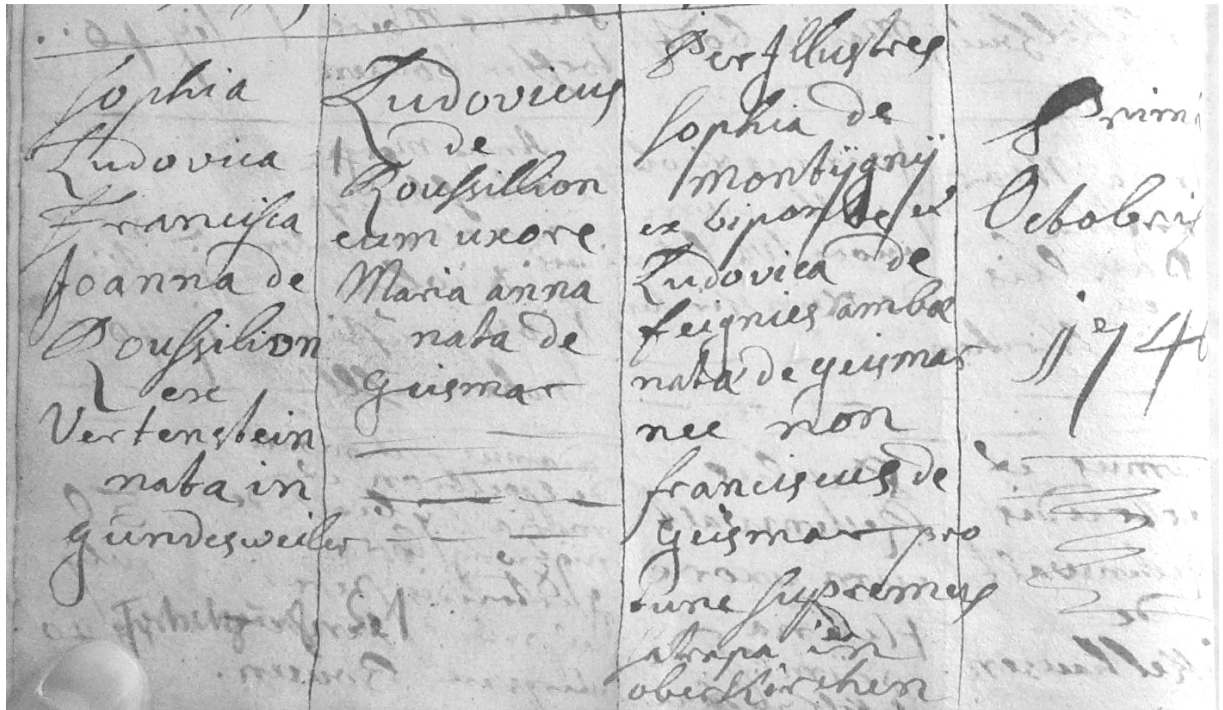 Sophia
Ludovica
Francisca
Joanna de
Roussilion
ex
Vertenstein
nata in
gündesweiler
Ludovicus
de
Roussillion
cum uxore
Maria anna
nata de
Geismar
Per Illustres
Sophia de
Montÿgnÿ
ex biponte et
Ludovica de
feignies ambæ
nata de geismar
nec non
franciscus de
geismar pro
tunc supremus
satrapa in
oberkirchen
Primi
Octobris
174